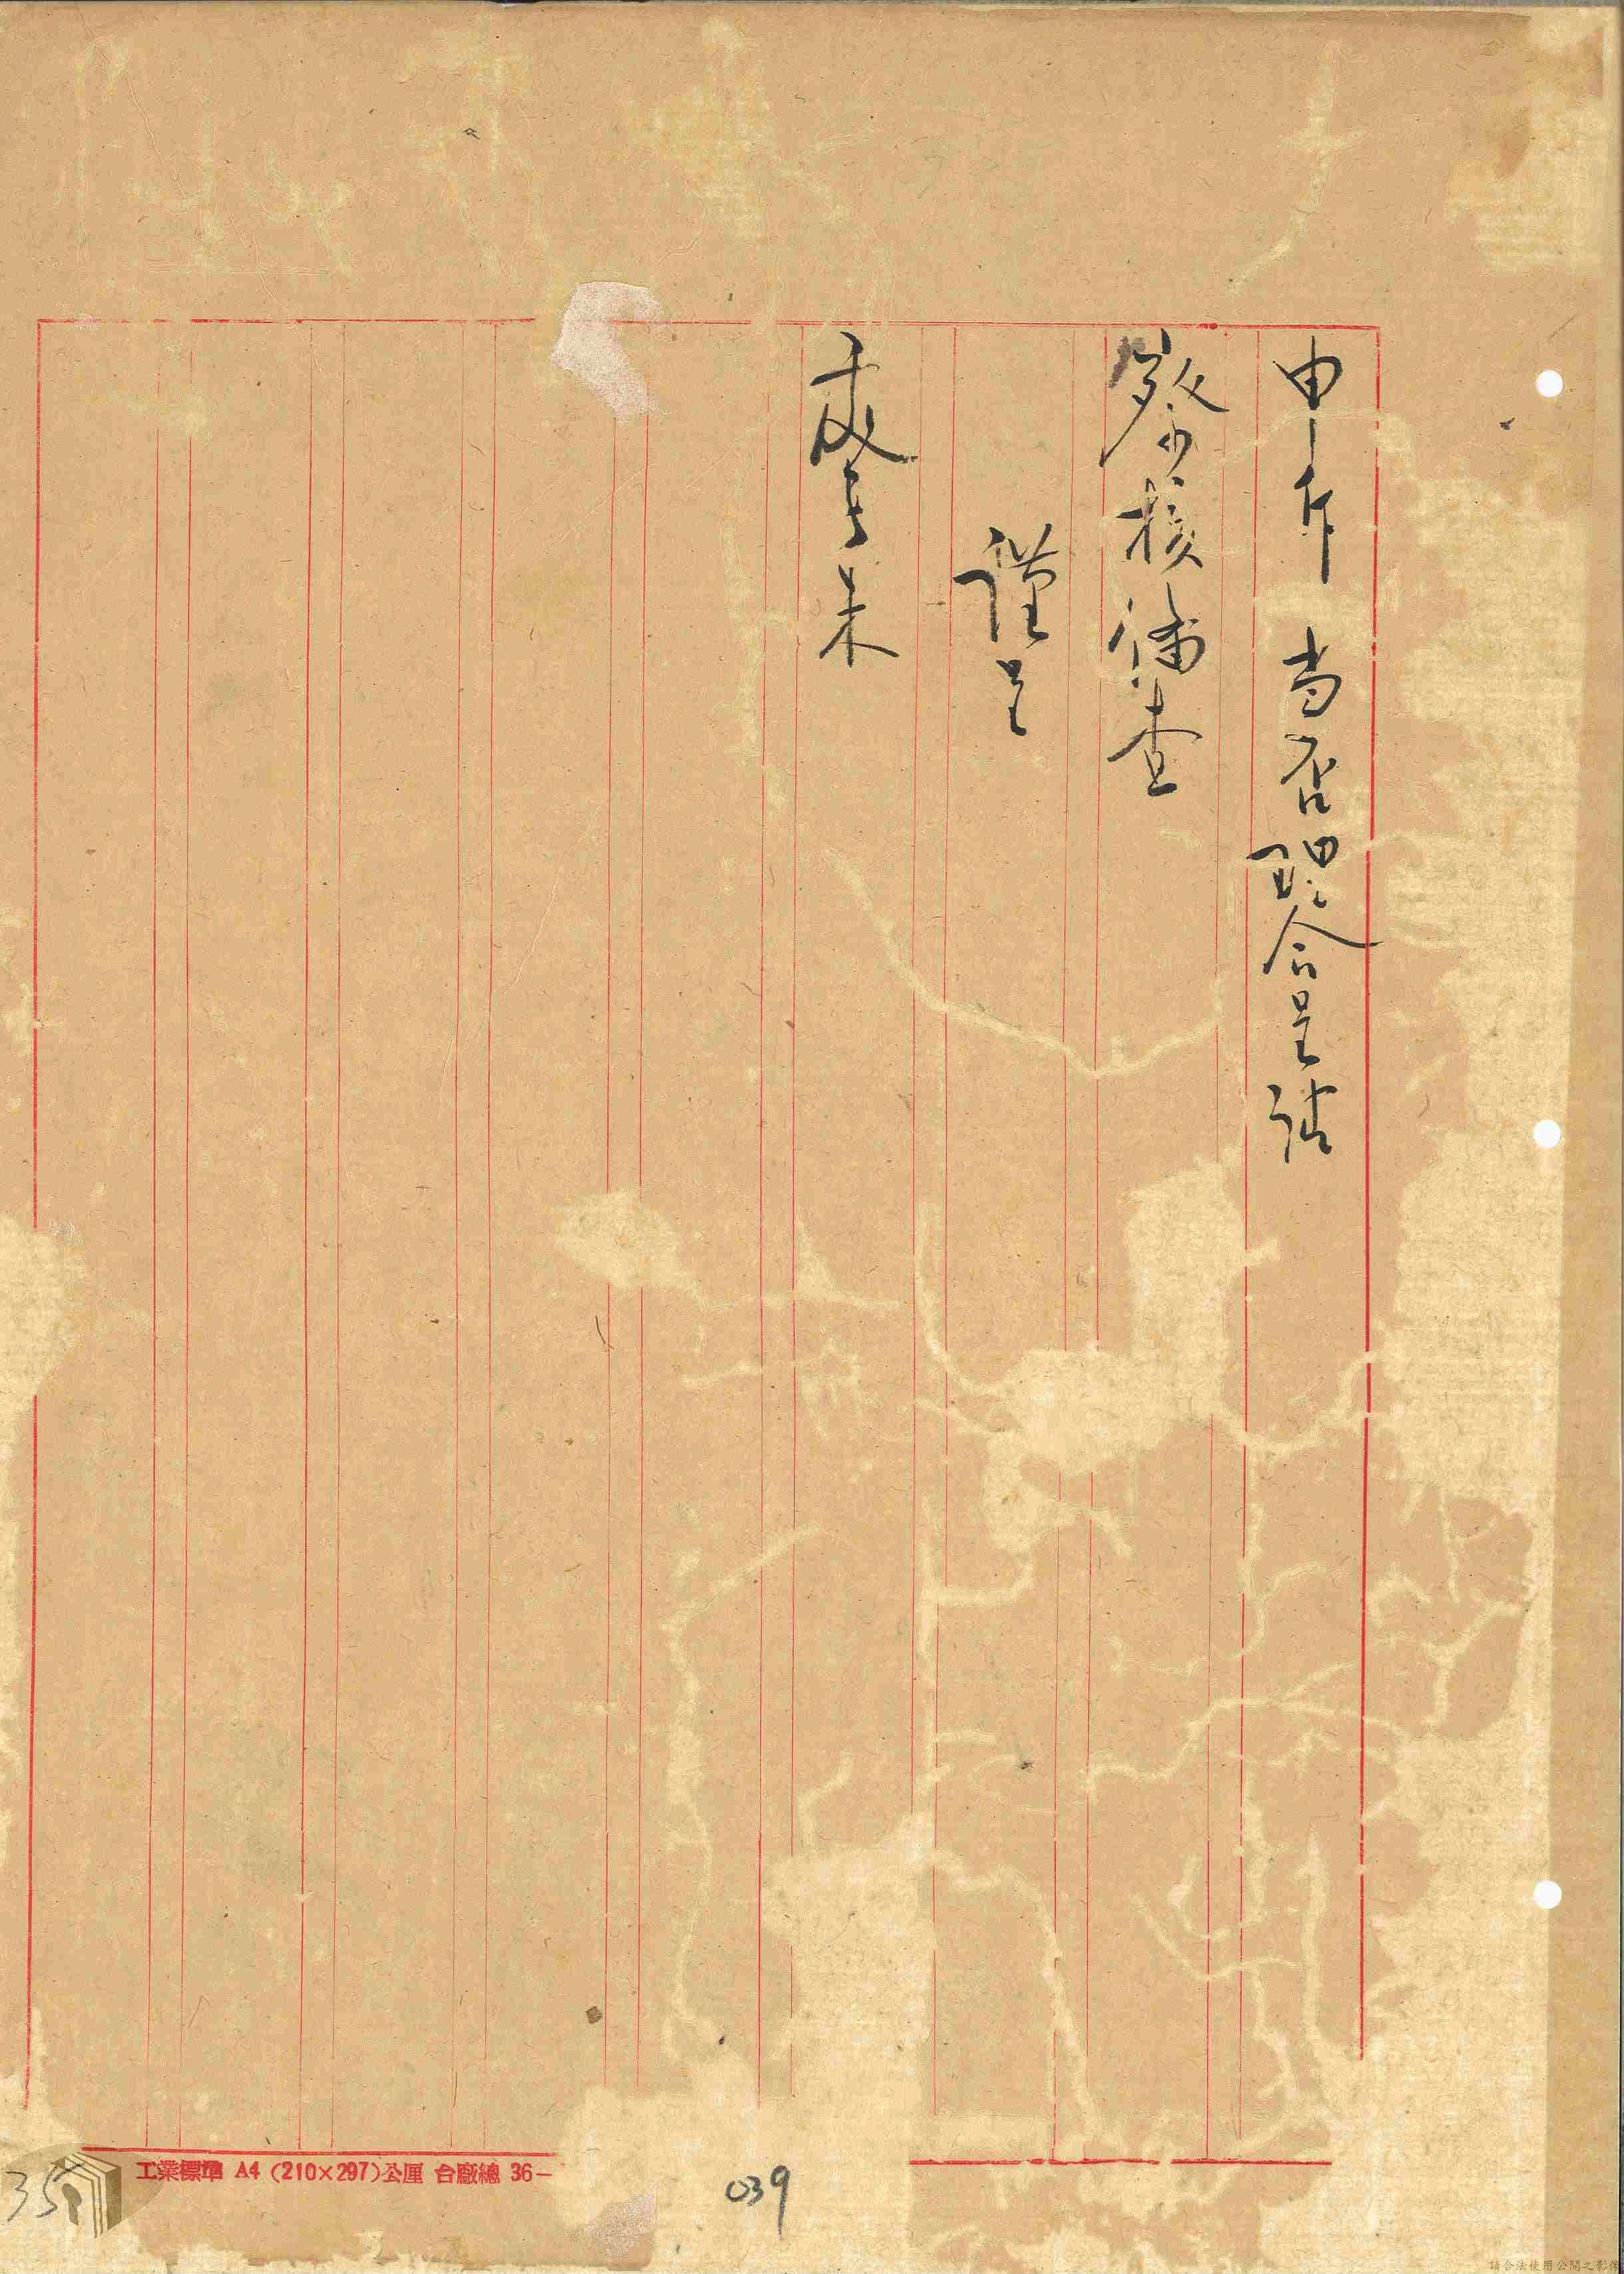 申斥　当否理合呈请
察核備查
謹呈
處長朱
工業標準 A4 (210×297)公厘 台廠總 36—
039
35
請合法使用公開之影像